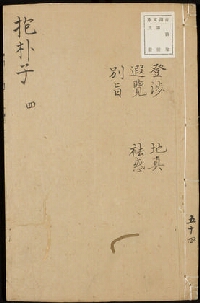 抱朴子 四
登渉 地真
遐覽 祛惑
別旨
五十四